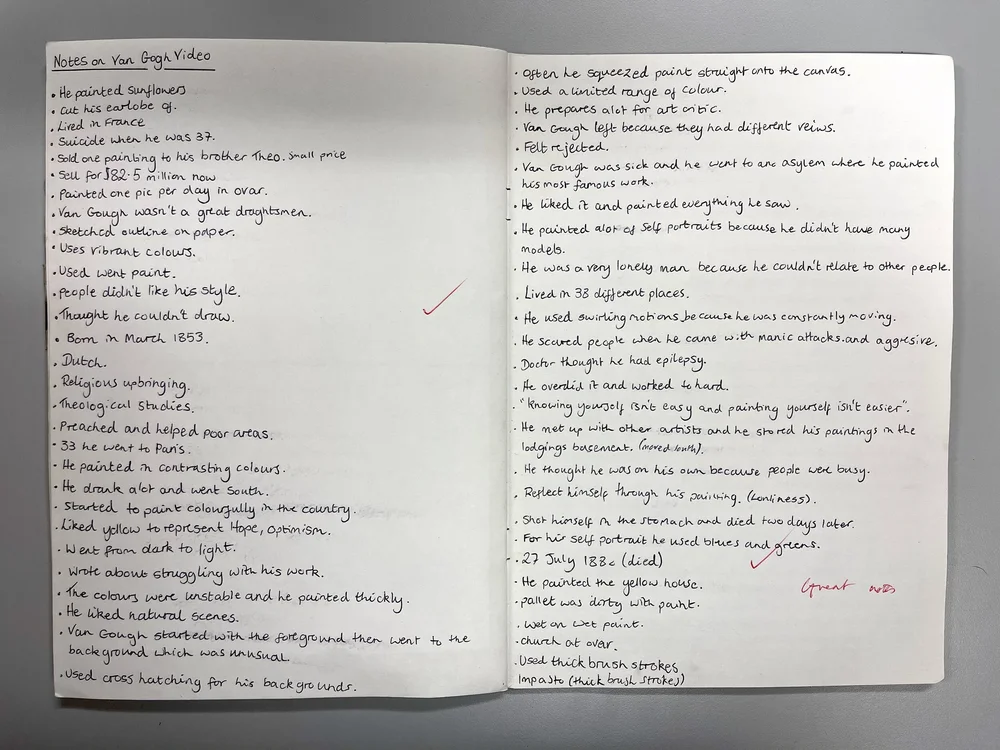 Notes on Van Gogh Video
• He painted sunflowers
• Cut his earlobe of.
• Lived in France
• Suicide when he was 37.
• Sold one painting to his brother Theo. small price
• Sell for $82.5 million now
• Painted one pic per day in ovar.
• Van Gough wasn't a great draghtsmen.
• Sketched outline on paper.
• Uses vibrant colours.
• Used went paint.
• People didn't like his style.
• Thought he couldn't draw.
• Born in March 1853.
• Dutch.
• Religious upbringing.
• Theological studies.
• Preached and helped poor areas.
• 33 he went to Paris.
• He painted in contrasting colours.
• He drank alot and went South.
• Started to paint colourfully in the country.
• Liked yellow to represent Hope, optimism.
• Went from dark to light.
• Wrote about struggling with his work.
• The colours were unstable and he painted thickly.
• He liked natural scenes.
• Van Gough started with the foreground then went to the
background which was unusual.
• Used cross hatching for his backgrounds.
• Often he squeezed paint straight onto the canvas.
• Used a limited range of colour.
• He prepares alot for art critic.
• Van Gough left because they had different veiws.
• Felt rejected.
• Van Gough was sick and he went to anc asylem where he painted
his most famous work.
• He liked it and painted everything he saw.
• He painted alot of self portraits because he didn't have many
models.
• He was a very lonely man because he couldn't relate to other people.
• Lived in 38 different places.
• He used swirling motions because he was constantly moving.
• He scared people when he came with manic attacks and aggresive.
• Doctor thought he had epilepsy.
• He overdid it and worked to hard.
• "Knowing yourself isn't easy and painting yourself isn't easier".
• He met up with other artists and he stored his paintings in the
lodgings basement. (moved south).
• He thought he was on his own because people were busy.
• Reflect himself through his painting. (Lonliness).
• Shot himself in the stomach and died two days later.
• For his self portrait he used blues and greens.
• 27 July (died)
• He painted the yellow house.
• pallet was dirty with paint.
• Wet on wet paint.
• church at ovar.
• Used thick brush strokes
Impasto (thick brush strokes)
Great notes